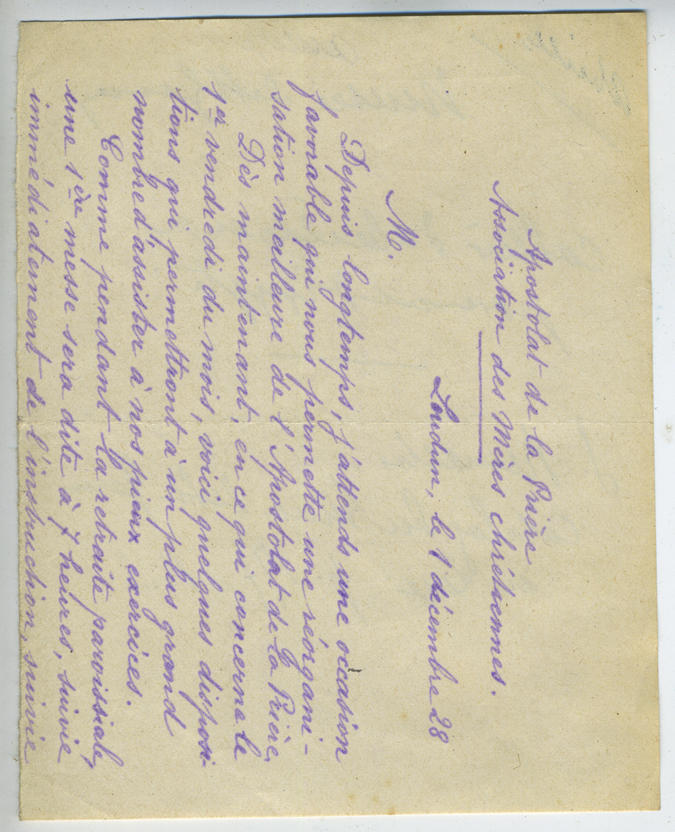 Apostolat de la Prière
Association des Mères chrétiennes.
Loudun, le 1 décembre 28
M.
Depuis longtemps, j'attends une occasion
favorable qui nous permette une réorgani-
sation meilleure de l'Apostolat de la Prière.
Dès maintenant, en ce qui concerne le
1er vendredi du mois, voici quelques disposi-
tions qui permettront à un plus grand
nombre d'assister à nos pieux exercices.
Comme pendant la retraite paroissiale,
une 1ère messe sera dite à 7 heures, suivie
immédiatement de l'instruction, suivie